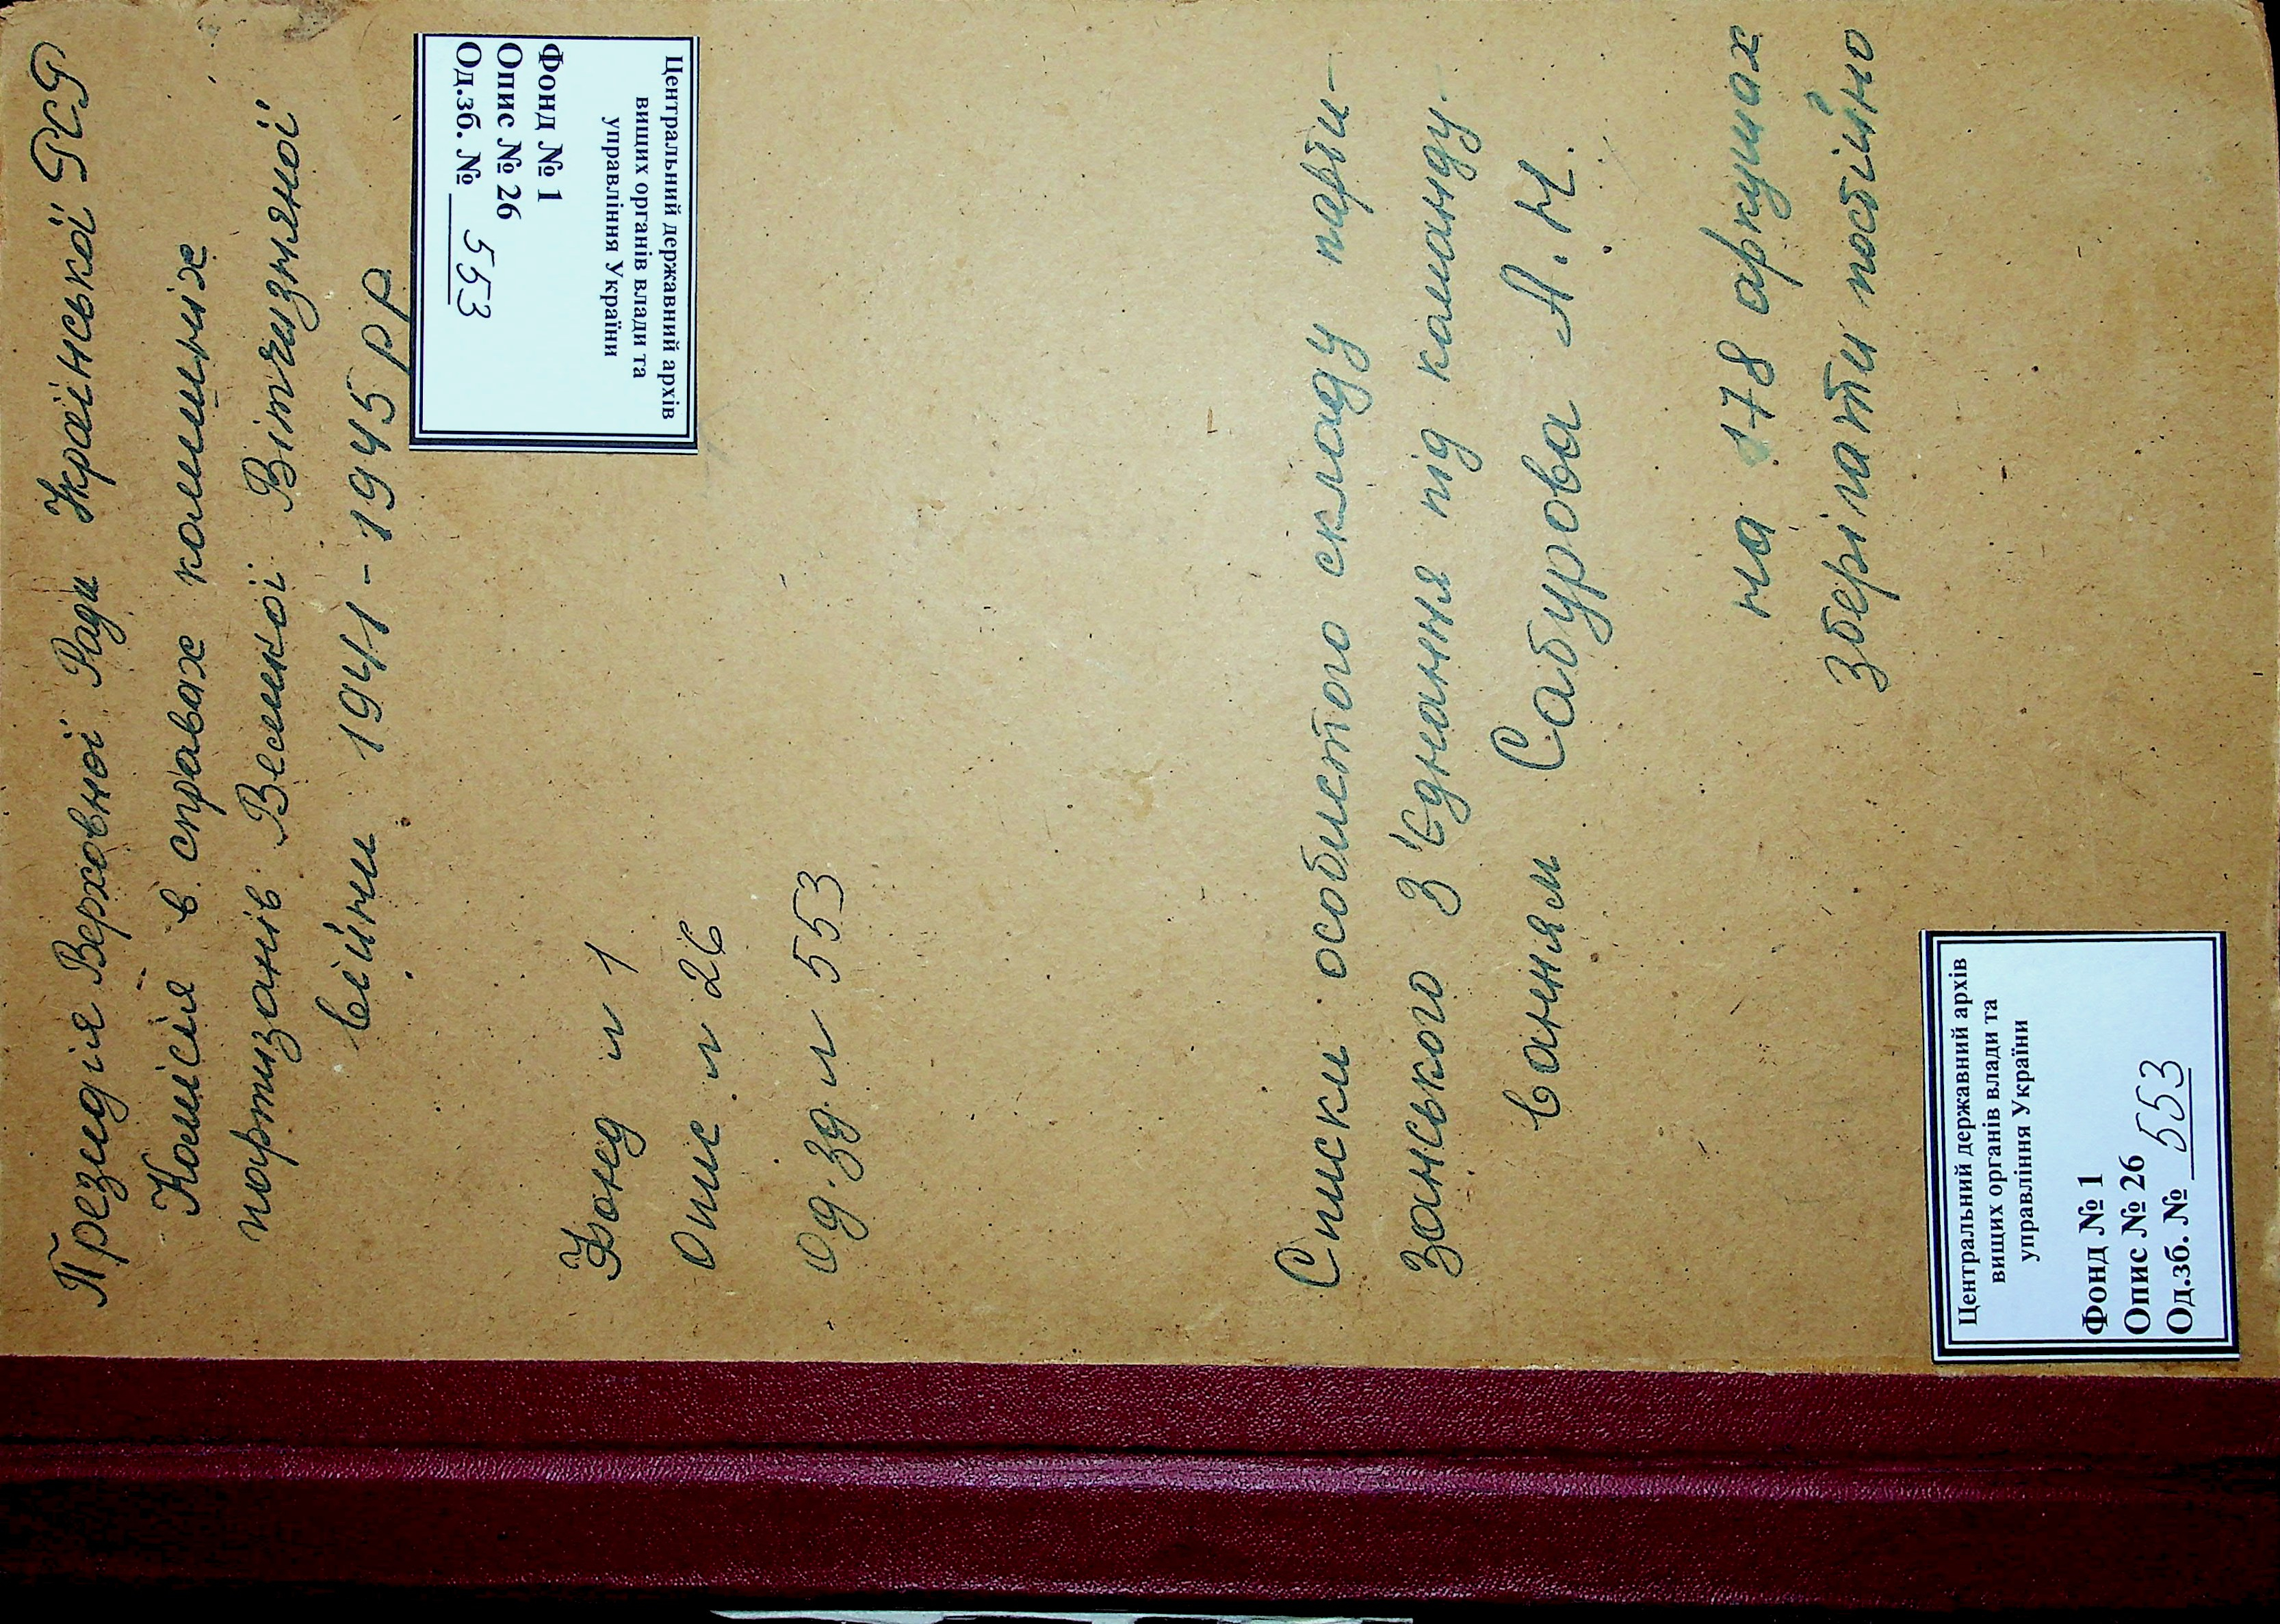 Президія Верховної Ради Української РСР
Комісія в справах колишніх
партизанів Великої Вітчизняної
війни 1941-1945 рр
Центральний державний архів
вищих органів влади та
управління України
Фонд № 1
Опис № 26
Од.зб. № 553
Фонд № 1
Опис № 26
Од. зд № 553
Списки особистого складу парти-
занського з'єднання під команду-
ванням Сабурова А.Н.
на 178 аркушах
зберігати постійно
Центральний державний архів
вищих органів влади та
управління України
Фонд № 1
Опис № 26
Од.зб. № 553